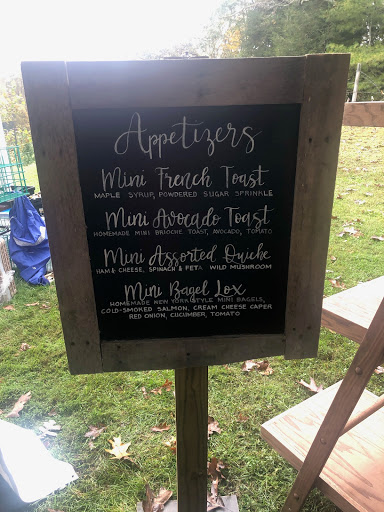 Appetizers
Mini French Toast
MAPLE SYRUP, POWDERED SUGAR SPRINKLE
Mini Avocado Toast
HOMEMADE MINI BRIOCHE TOAST, AVOCADO, TOMATO
Mini Assorted Quiche
HAM & CHEESE, SPINACH & FETA WILD MUSHROOM
Mini Bagel Lox
HOMEMADE NEW YORK STYLE MINI BAGELS,
COLD-SMOKED SALMON, CREAM CHEESE CAPER
RED ONION, CUCUMBER, TOMATO